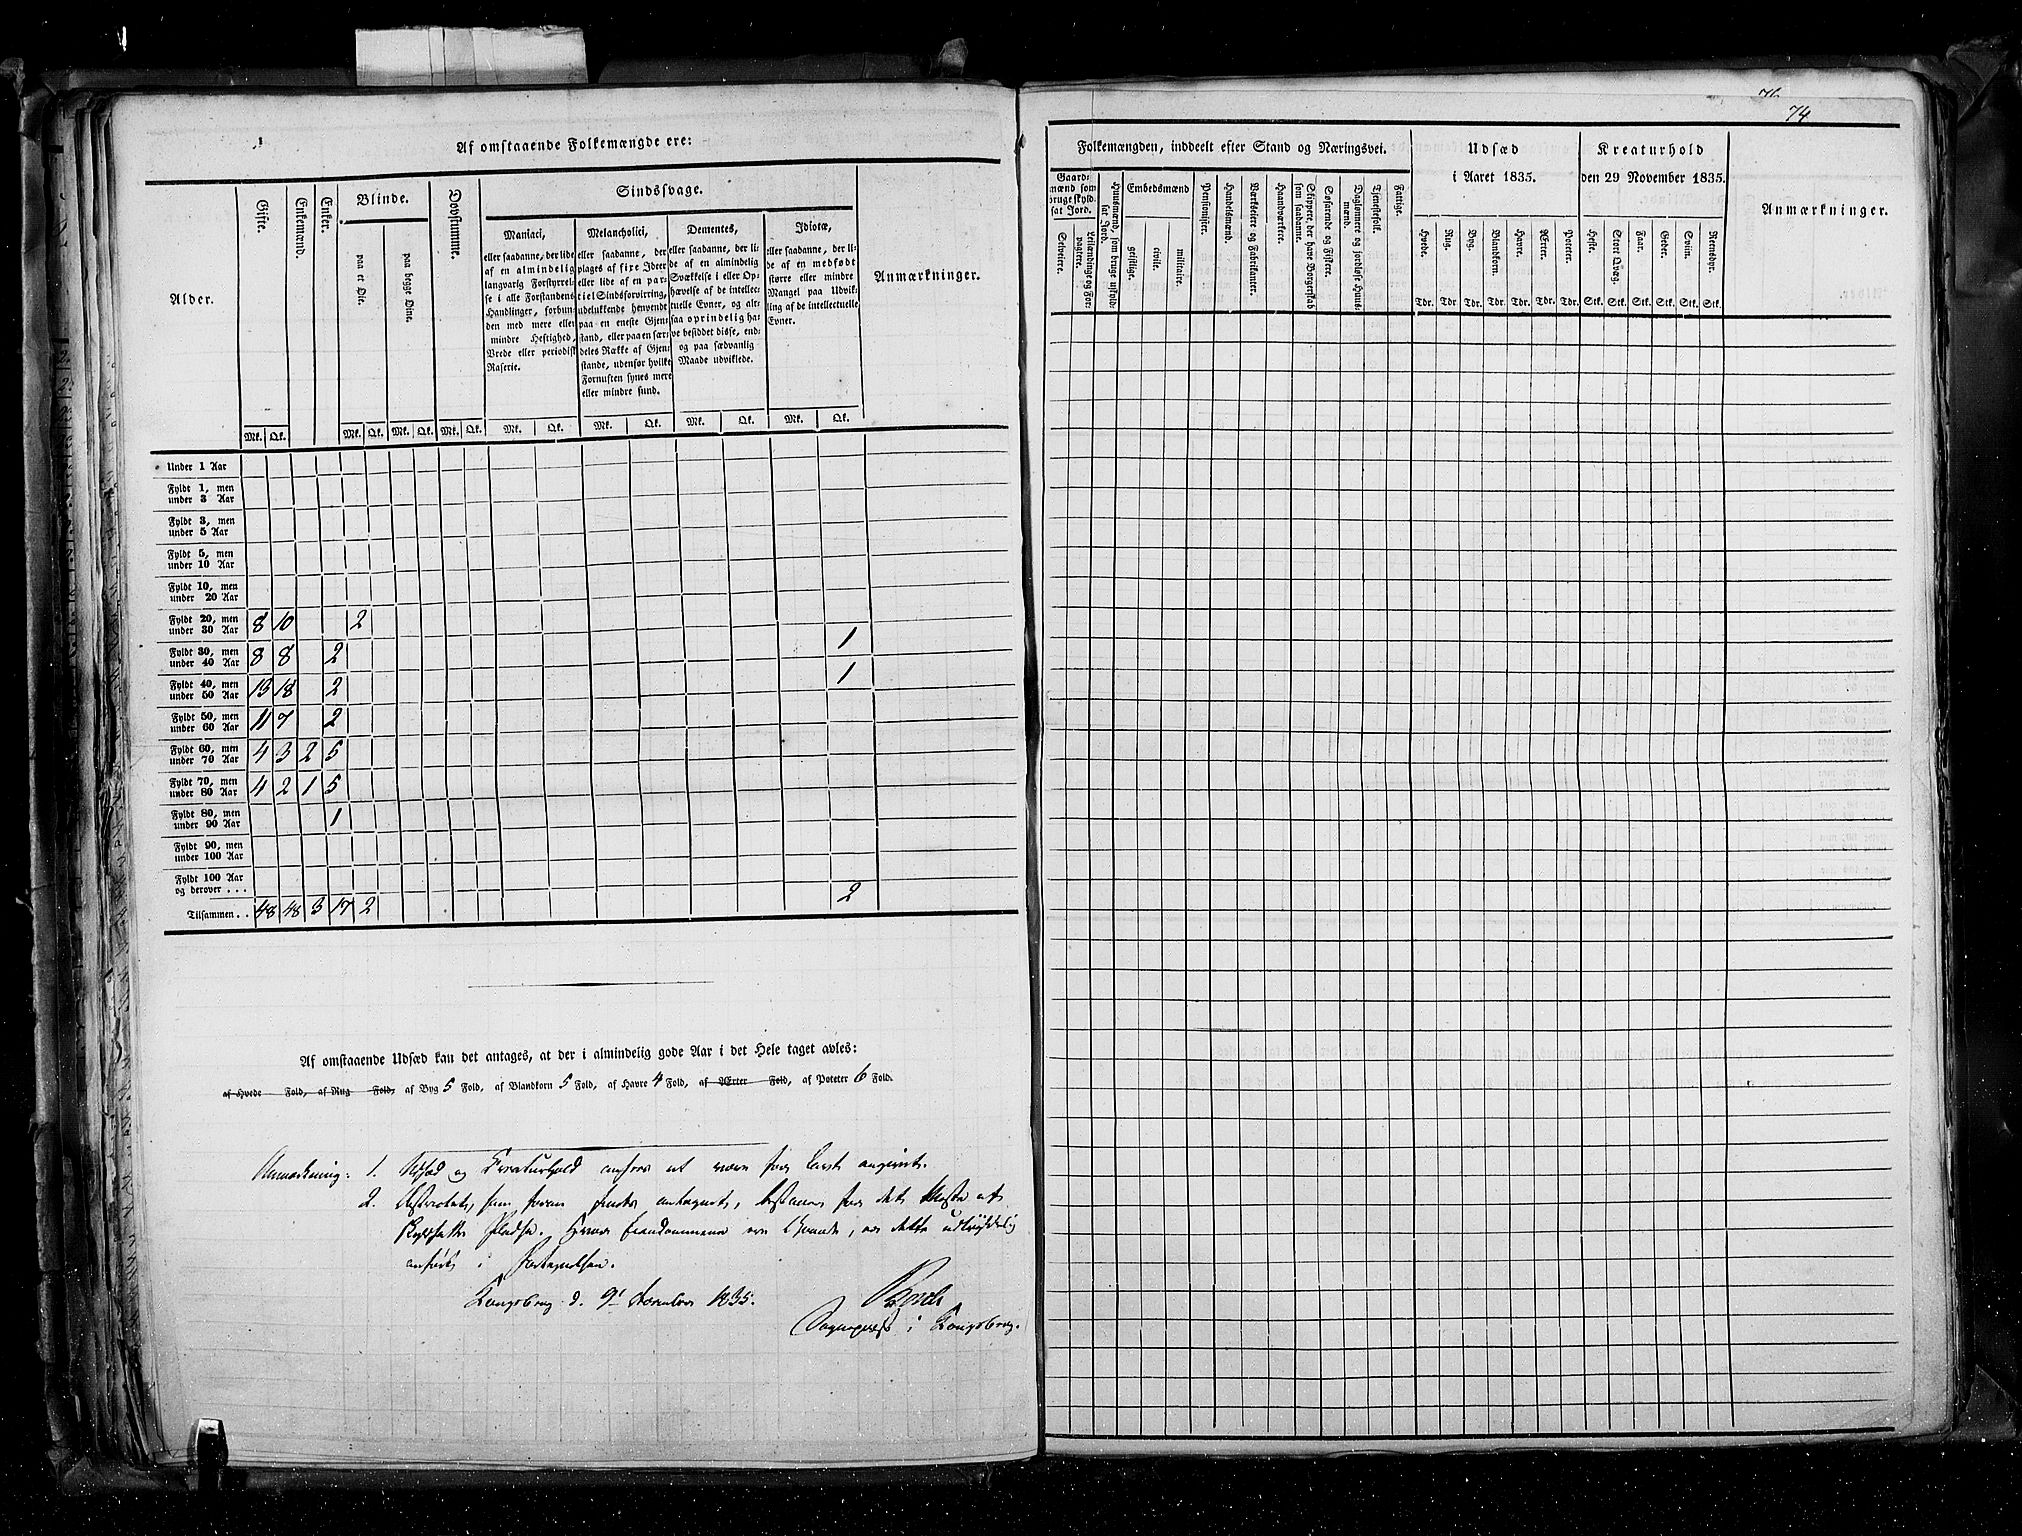 76
74
Af omstaaende Folkemængde ere:
Alder.
Gifte.
Enkemænd.
Enker.
Blinde.
paa et Øie.
paa begge Øine.
Døvstumme.
Sindssvage.
Maniaci,
eller saadanne, der lide
af en almindelig
langvarig Forstyrrel-
se i alle Forstandens
Handlinger, forbun-
den med mere eller
mindre Heftighed,
Vrede eller periodisk
Raserie.
Melancholici,
eller saadanne, der
plages af fixe Ideer
eller lide af en par-
tiel Sindsforvirring,
udelukkende henvendt
paa en eneste Gjen-
stand, eller paa en sær-
deles Række af Gjen-
stande, udenfor hvilke
Fornuften synes mere
eller mindre sund.
Dementes,
eller saadanne, der li-
de af en almindelig
Svækkelse i eller Op-
hævelse af de intellec-
tuelle Evner, og alt-
saa oprindelig ha-
ve besiddet disse, end-
og paa sædvanlig
Maade udviklede.
Idiotæ,
eller saadanne, der li-
de af en medfødt
større eller mindre
Mangel paa Udvik-
ling af de intellectuelle
Evner.
Anmærkninger.
Mk. Qk. Mk. Qk. Mk. Qk. Mk. Qk. Mk. Qk. Mk. Qk. Mk. Qk. Mk. Qk.
Under 1 Aar
Fyldt 1, men
under 3 Aar
Fyldt 3, men
under 5 Aar
Fyldt 5, men
under 10 Aar
Fyldt 10, men
under 20 Aar
Fyldt 20, men
under 30 Aar 8 10 2
Fyldt 30, men
under 40 Aar 8 8 2 1
Fyldt 40, men
under 50 Aar 13 18 2 1
Fyldt 50, men
under 60 Aar 11 7 2
Fyldt 60, men
under 70 Aar 4 3 2 5
Fyldt 70, men
under 80 Aar 4 2 1 5
Fyldt 80, men
under 90 Aar 1
Fyldt 90, men
under 100 Aar
Fyldt 100 Aar
og derover . . .
Tilsammen . . 48 48 3 17 2 2
Af omstaaende Udsæd kan det antages, at der i almindelig gode Aar i det Hele taget avles:
af Hvede Fold, af Rug Fold, af Byg 5 Fold, af Blandkorn 5 Fold, af Havre 4 Fold, af Ærter Fold, af Poteter 6 Fold.
Anmærkning: 1. Udsæd og Creaturhold ansees at være for lavt angivet.
2. som foran antegnet, bestaaer for det Meste af
Pladse. ere Gaarde, er dette udtrykkelig
anført i Fortegnelsen.
Kongsberg d. 9 December 1835.
Sognepræst i Kongsberg.
Folkemængden, inddeelt efter Stand og Næringsvei.
Gaard-
mænd som
bruge skyld-
sat Jord.
Selveiere.
Leilændinge og For-
pagtere.
Huusmænd, som bruge skyld-
sat Jord.
Embedsmænd
geistlige.
civile.
militaire.
Pensionister.
Handelsmænd.
Værkseiere og Fabrikanter.
Haandværkere.
Skippere, der have Borgerskab
som saadanne.
Søfarende og Fiskere.
Daglønnere og jordløse Huus-
mænd.
Tjenestefolk.
Fattige.
Udsæd
i Aaret 1835.
Hvede.
Rug.
Byg.
Blandkorn.
Havre.
Ærter.
Poteter.
Tdr. Tdr. Tdr. Tdr. Tdr. Tdr. Tdr.
Kreaturhold
den 29 November 1835.
Heste.
Stort Qvæg.
Faar.
Geder.
Sviin.
Rensdyr.
Stk. Stk. Stk. Stk. Stk. Stk.
Anmærkninger.